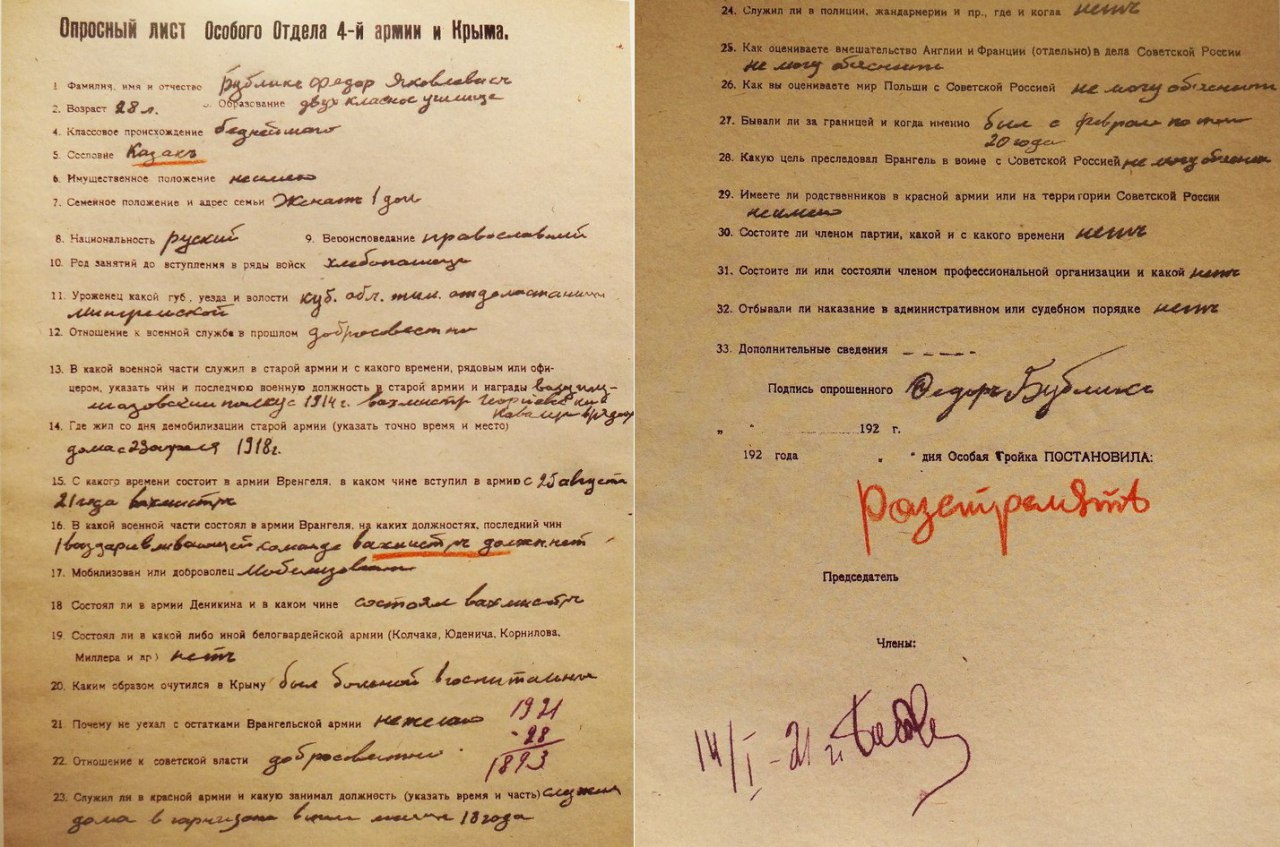 Опросный лист Особого Отдела 4-й армии и Крыма.
1 Фамилия, имя и отчество Бубликъ Федор Яковлевичъ
2. Возраст 28 л. Образование двух класное училище
4. Классовое происхождение беднейшаго
5. Сословие Казакъ
6. Имущественное положение неимею
7. Семейное положение и адрес семьи Женатъ 1 дочь
8. Национальность руский 9. Вероисповедание православний
10. Род занятий до вступления в ряды войск хлебопашец
11. Уроженец какой губ, уезда и волости куб. обл. отдела станицы
Мингрельской
12. Отношение к военной службе в прошлом добросовестно
13. В какой военной части служил в старой армии и с какого времени, рядовым или офи-
цером, указать чин и последнюю военную должность в старой армии и награды
полку с 1914 г. вахмистр георгиевский
кавалер
14. Где жил со дня демобилизации старой армии (указать точно время и место)
дома с 23 апреля 1918 г.
15. С какого времени состоит в армии Вренгеля, в каком чине вступил в армию с 25 августа
21 года вахмистръ
16. В какой военной части состоял в армии Врангеля, на каких должностях, последний чин
команде вахмистръ должн. нет
17. Мобилизован или доброволец Мобелизован
18 Состоял ли в армии Деникина и в каком чине состоял вахмистръ
19. Состоял ли в какой либо иной белогвардейской армии (Колчака, Юденича, Корнилова,
Миллера и др) нетъ
20. Каким образом очутился в Крыму был больной
21. Почему не уехал с остатками Врангельской армии нежелаю
1921
- 28
1893
22. Отношение к советской власти
23. Служил ли в красной армии и какую занимал должность (указать время и часть) служил
дома в 18 года
24. Служил ли в полиции, жандармерии и пр., где и когда нетъ
25. Как оцениваете вмешательство Англии и Франции (отдельно) в дела Советской России
не могу обяснить
26. Как вы оцениваете мир Польши с Советской Россией не могу обяснить
27. Бывали ли за границей и когда именно был с февраля по
20 года
28. Какую цель преследовал Врангель в воине с Советской Россией не могу обяснить
29. Имеете ли родственников в красной армии или на территории Советской России
неимею
30. Состоите ли членом партии, какой и с какого времени нетъ
31. Состоите ли или состояли членом профессиональной организации и какой нетъ
32. Отбывали ли наказание в административном или судебном порядке нетъ
33. Дополнительные сведения – – – – –
Подпись опрошенного Федоръ Бубликъ
„ " 192 г.
192 года „ " дня Особая Тройка ПОСТАНОВИЛА:
Разстрелять
Председатель
Члены:
14/I - 21 г.